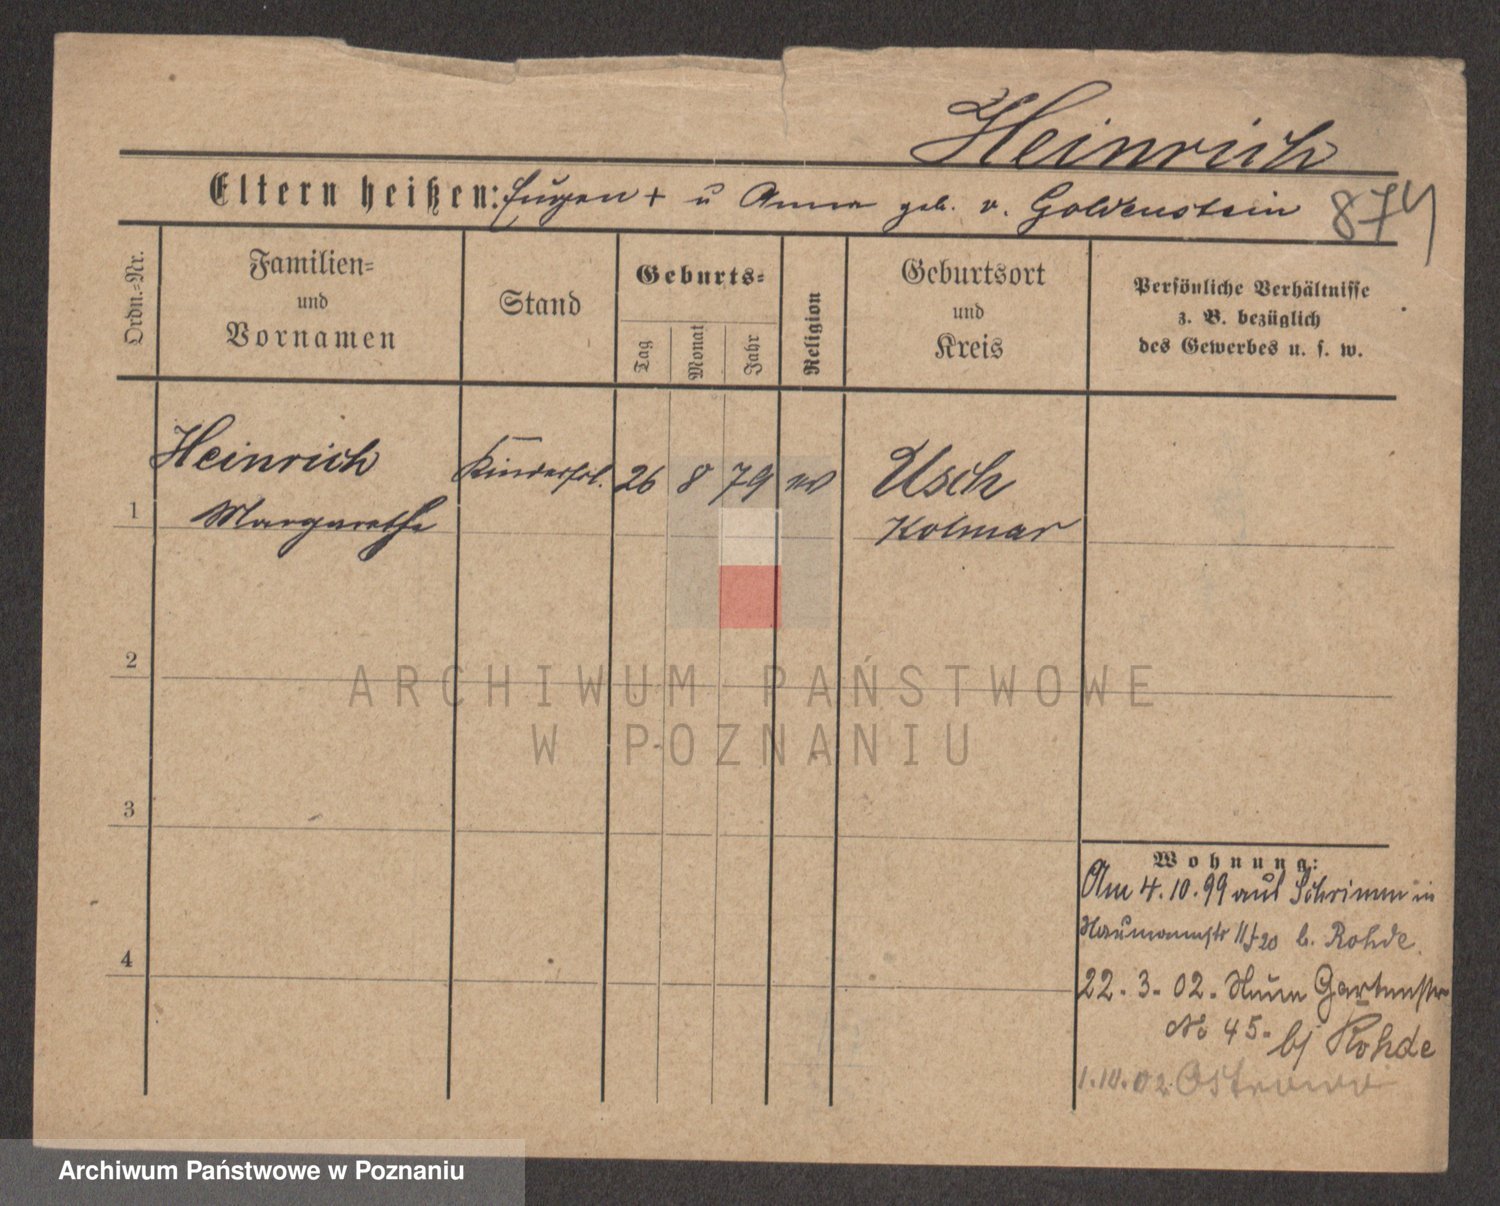 Heinrich
Eltern heißen: Eugen + u Anna geb. v. Goldenstein
874
Ordn.-Nr.
Familien-
und
Vornamen
Stand
Geburts-
Tag
Monat
Jahr
Religion
Geburtsort
und
Kreis
Persönliche Verhältnisse
z. B. bezüglich
des Gewerbes u. s. w.
1
Heinrich
Margarethe
Kinderfrl.
26
8
79
ev
Usch
Kolmar
2
ARCHIWUM PAŃSTWOWE
W POZNANIU
3
4
Wohnung:
Am 4.10.99 aus Schrimm in
Naumannstr 11/20 b. Rohde.
22. 3. 02. Gartenstr
No 45. bj Rohde
1.10.02 Ostrowo
Archiwum Państwowe w Poznaniu